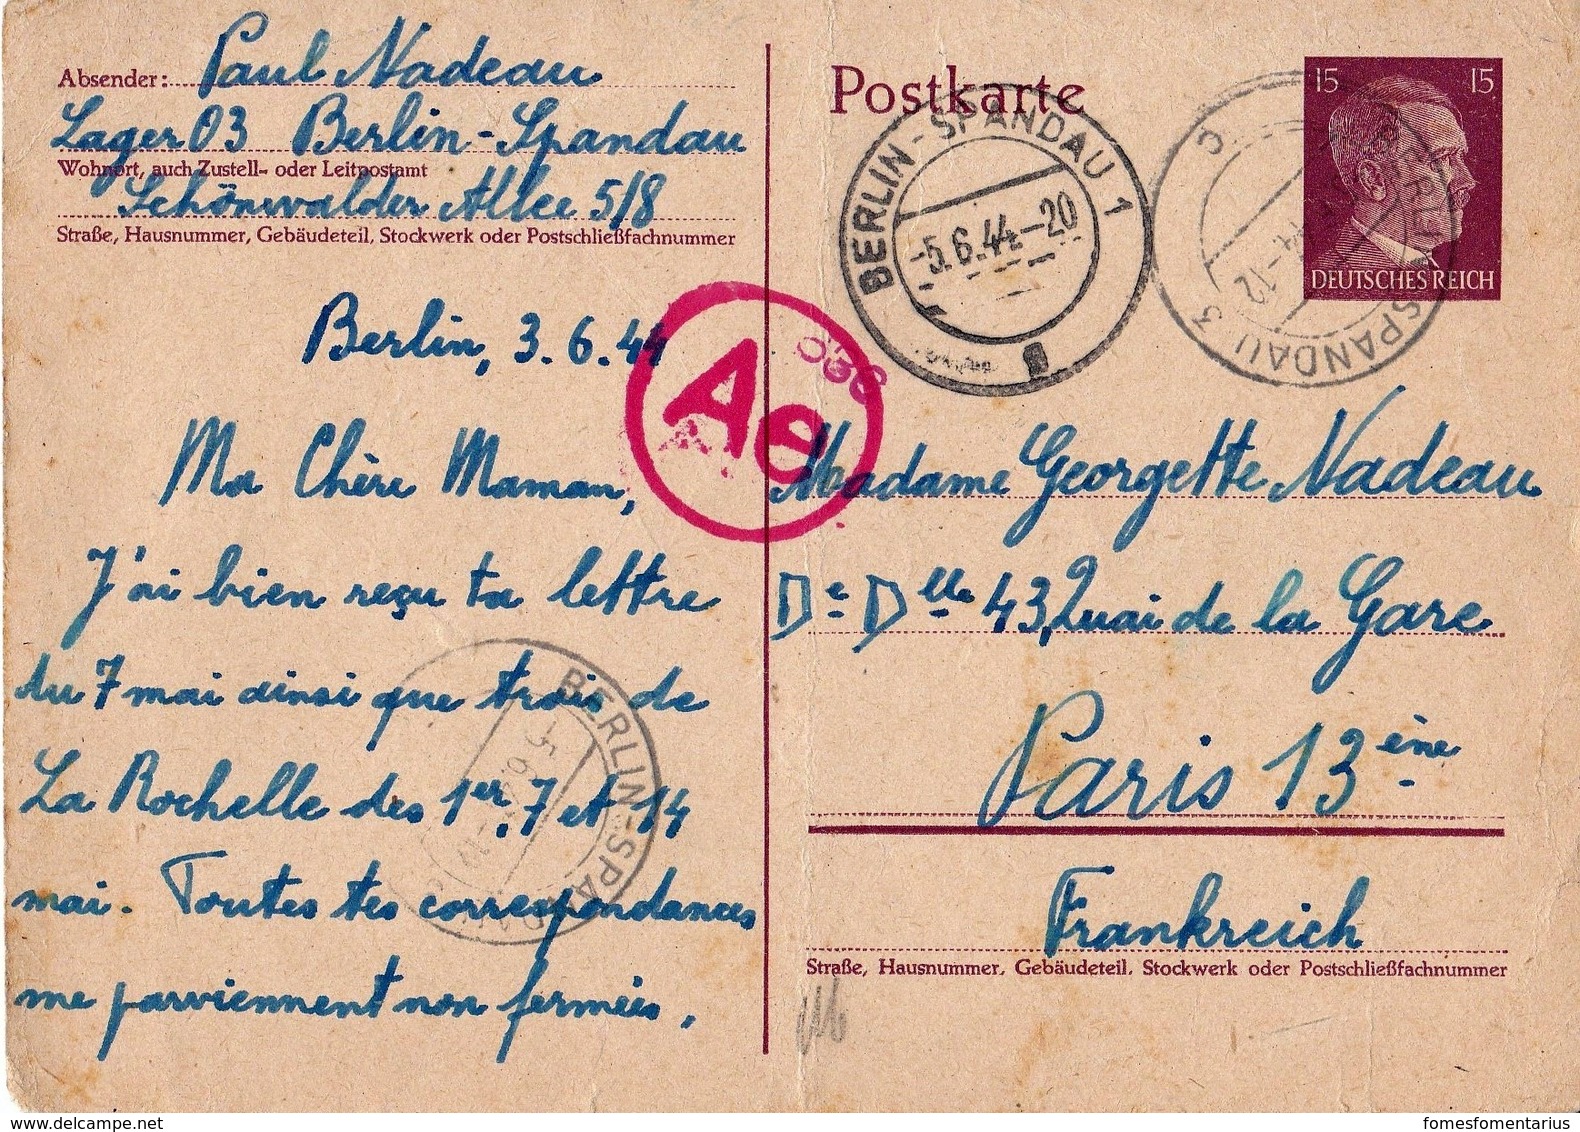 Absender: Paul Nadeau
Lager 03 Berlin-Spandau
Wohnort, auch Zustell- oder Leitpostamt
Schönwalder Allee 5/8
Straße, Hausnummer, Gebäudeteil, Stockwerk oder Postschließfachnummer
Berlin, 3.6.44
Ma Chère Maman,
J'ai bien reçu ta lettre
du 7 mai ainsi que trois de
La Rochelle des 1er, 7 et 14
mai. Toutes tes correspondances
me parviennent non fermées,
BERLIN-SPANDAU
Ae
Postkarte
BERLIN-SPANDAU 1
-5.6.44-20
BERLIN-SPANDAU 3
15 15
DEUTSCHES REICH
Madame Georgette Nadeau
De Dlle 43, Quai de la Gare
Paris 13ème
Frankreich
Straße, Hausnummer, Gebäudeteil, Stockwerk oder Postschließfachnummer
www.delcampe.net
fomesfomentarius